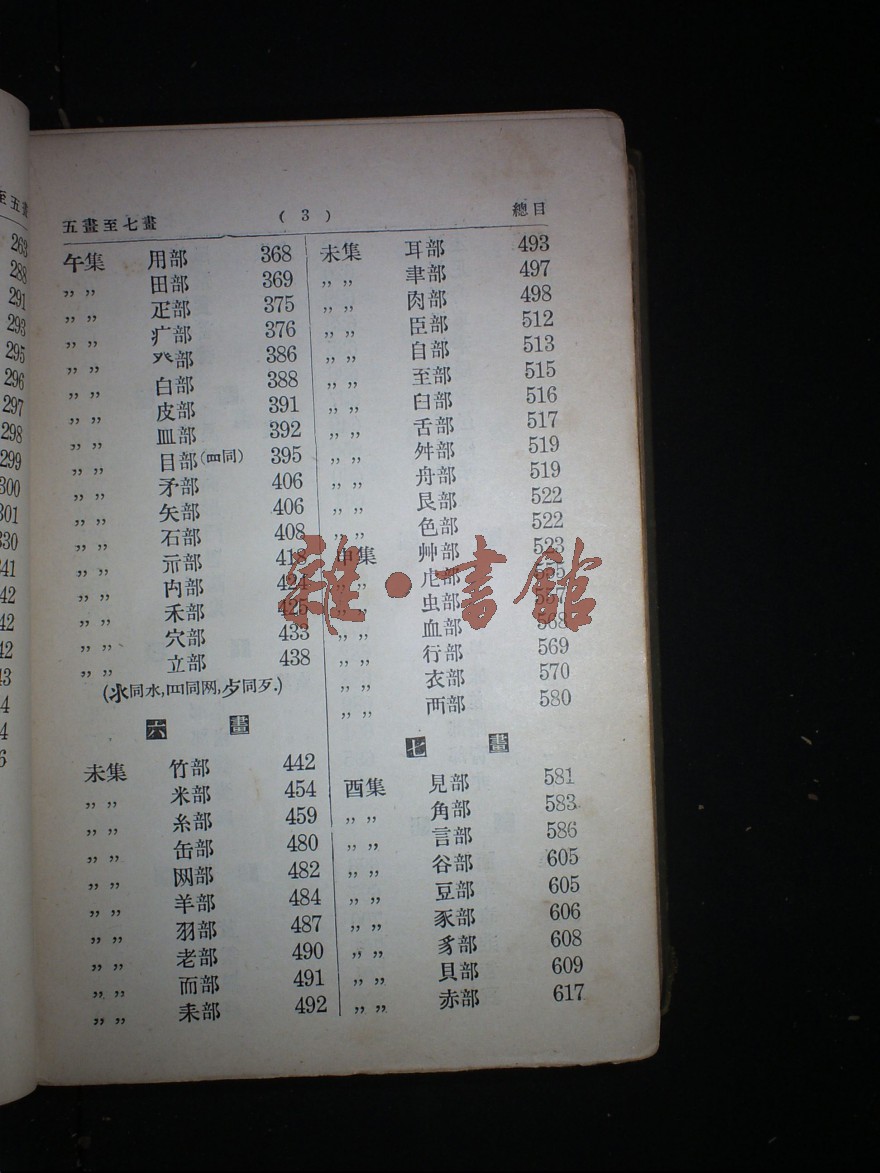 五畫至七畫 (3) 總目
午集 用部 368
〃〃 田部 369
〃〃 疋部 375
〃〃 疒部 376
〃〃 癶部 386
〃〃 白部 388
〃〃 皮部 391
〃〃 皿部 392
〃〃 目部(罒同) 395
〃〃 矛部 406
〃〃 矢部 406
〃〃 石部 408
〃〃 示部 418
〃〃 禸部 424
〃〃 禾部 425
〃〃 穴部 433
〃〃 立部 438
(氺同水,罒同网,歺同歹.)
六畫
未集 竹部 442
〃〃 米部 454
〃〃 糸部 459
〃〃 缶部 480
〃〃 网部 482
〃〃 羊部 484
〃〃 羽部 487
〃〃 老部 490
〃〃 而部 491
〃〃 耒部 492
未集 耳部 493
〃〃 聿部 497
〃〃 肉部 498
〃〃 臣部 512
〃〃 自部 513
〃〃 至部 515
〃〃 臼部 516
〃〃 舌部 517
〃〃 舛部 519
〃〃 舟部 519
〃〃 艮部 522
〃〃 色部 522
申集 艸部 523
〃〃 虍部
〃〃 虫部 557
〃〃 血部 568
〃〃 行部 569
〃〃 衣部 570
〃〃 襾部 580
七畫
酉集 見部 581
〃〃 角部 583
〃〃 言部 586
〃〃 谷部 605
〃〃 豆部 605
〃〃 豕部 606
〃〃 豸部 608
〃〃 貝部 609
〃〃 赤部 617
雜·書館
至五畫
263
288
291
293
295
296
297
298
299
300
301
330
341
42
42
42
43
4
4
6